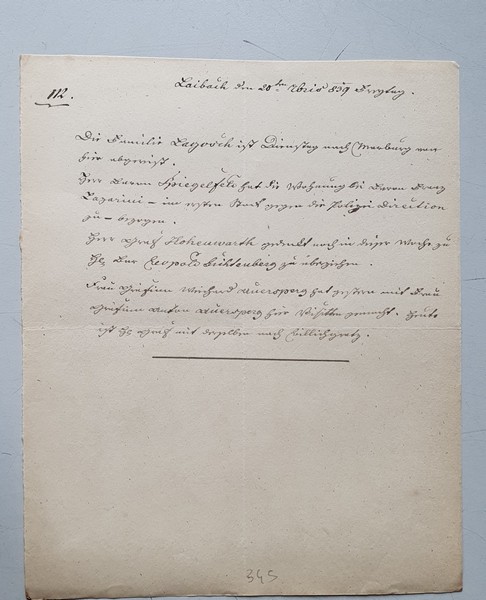 112.
Laibach den 20ten 7bris 839 Freytag.
Die Familie Lagosch ist Dienstag nach Marburg von
hier abgereist.
Herr Baron Spiegelfeld hat die Wohnung bei Baron Franz
Lazarini – im ersten Stock gegen die Polizei Direction
zu – bezogen.
Herr Graf Hohenwarth gedenkt noch in dieser Woche zu
H. Bar Leopold Lichtenberg zu übersiehen.
Frau Gräfinn Weichard Auersperg hat gestern mit Frau
Gräfinn Anton Auersperg hier Visitten gemacht. Heute
ist H. Graf mit derselben nach Billichgratz.
345